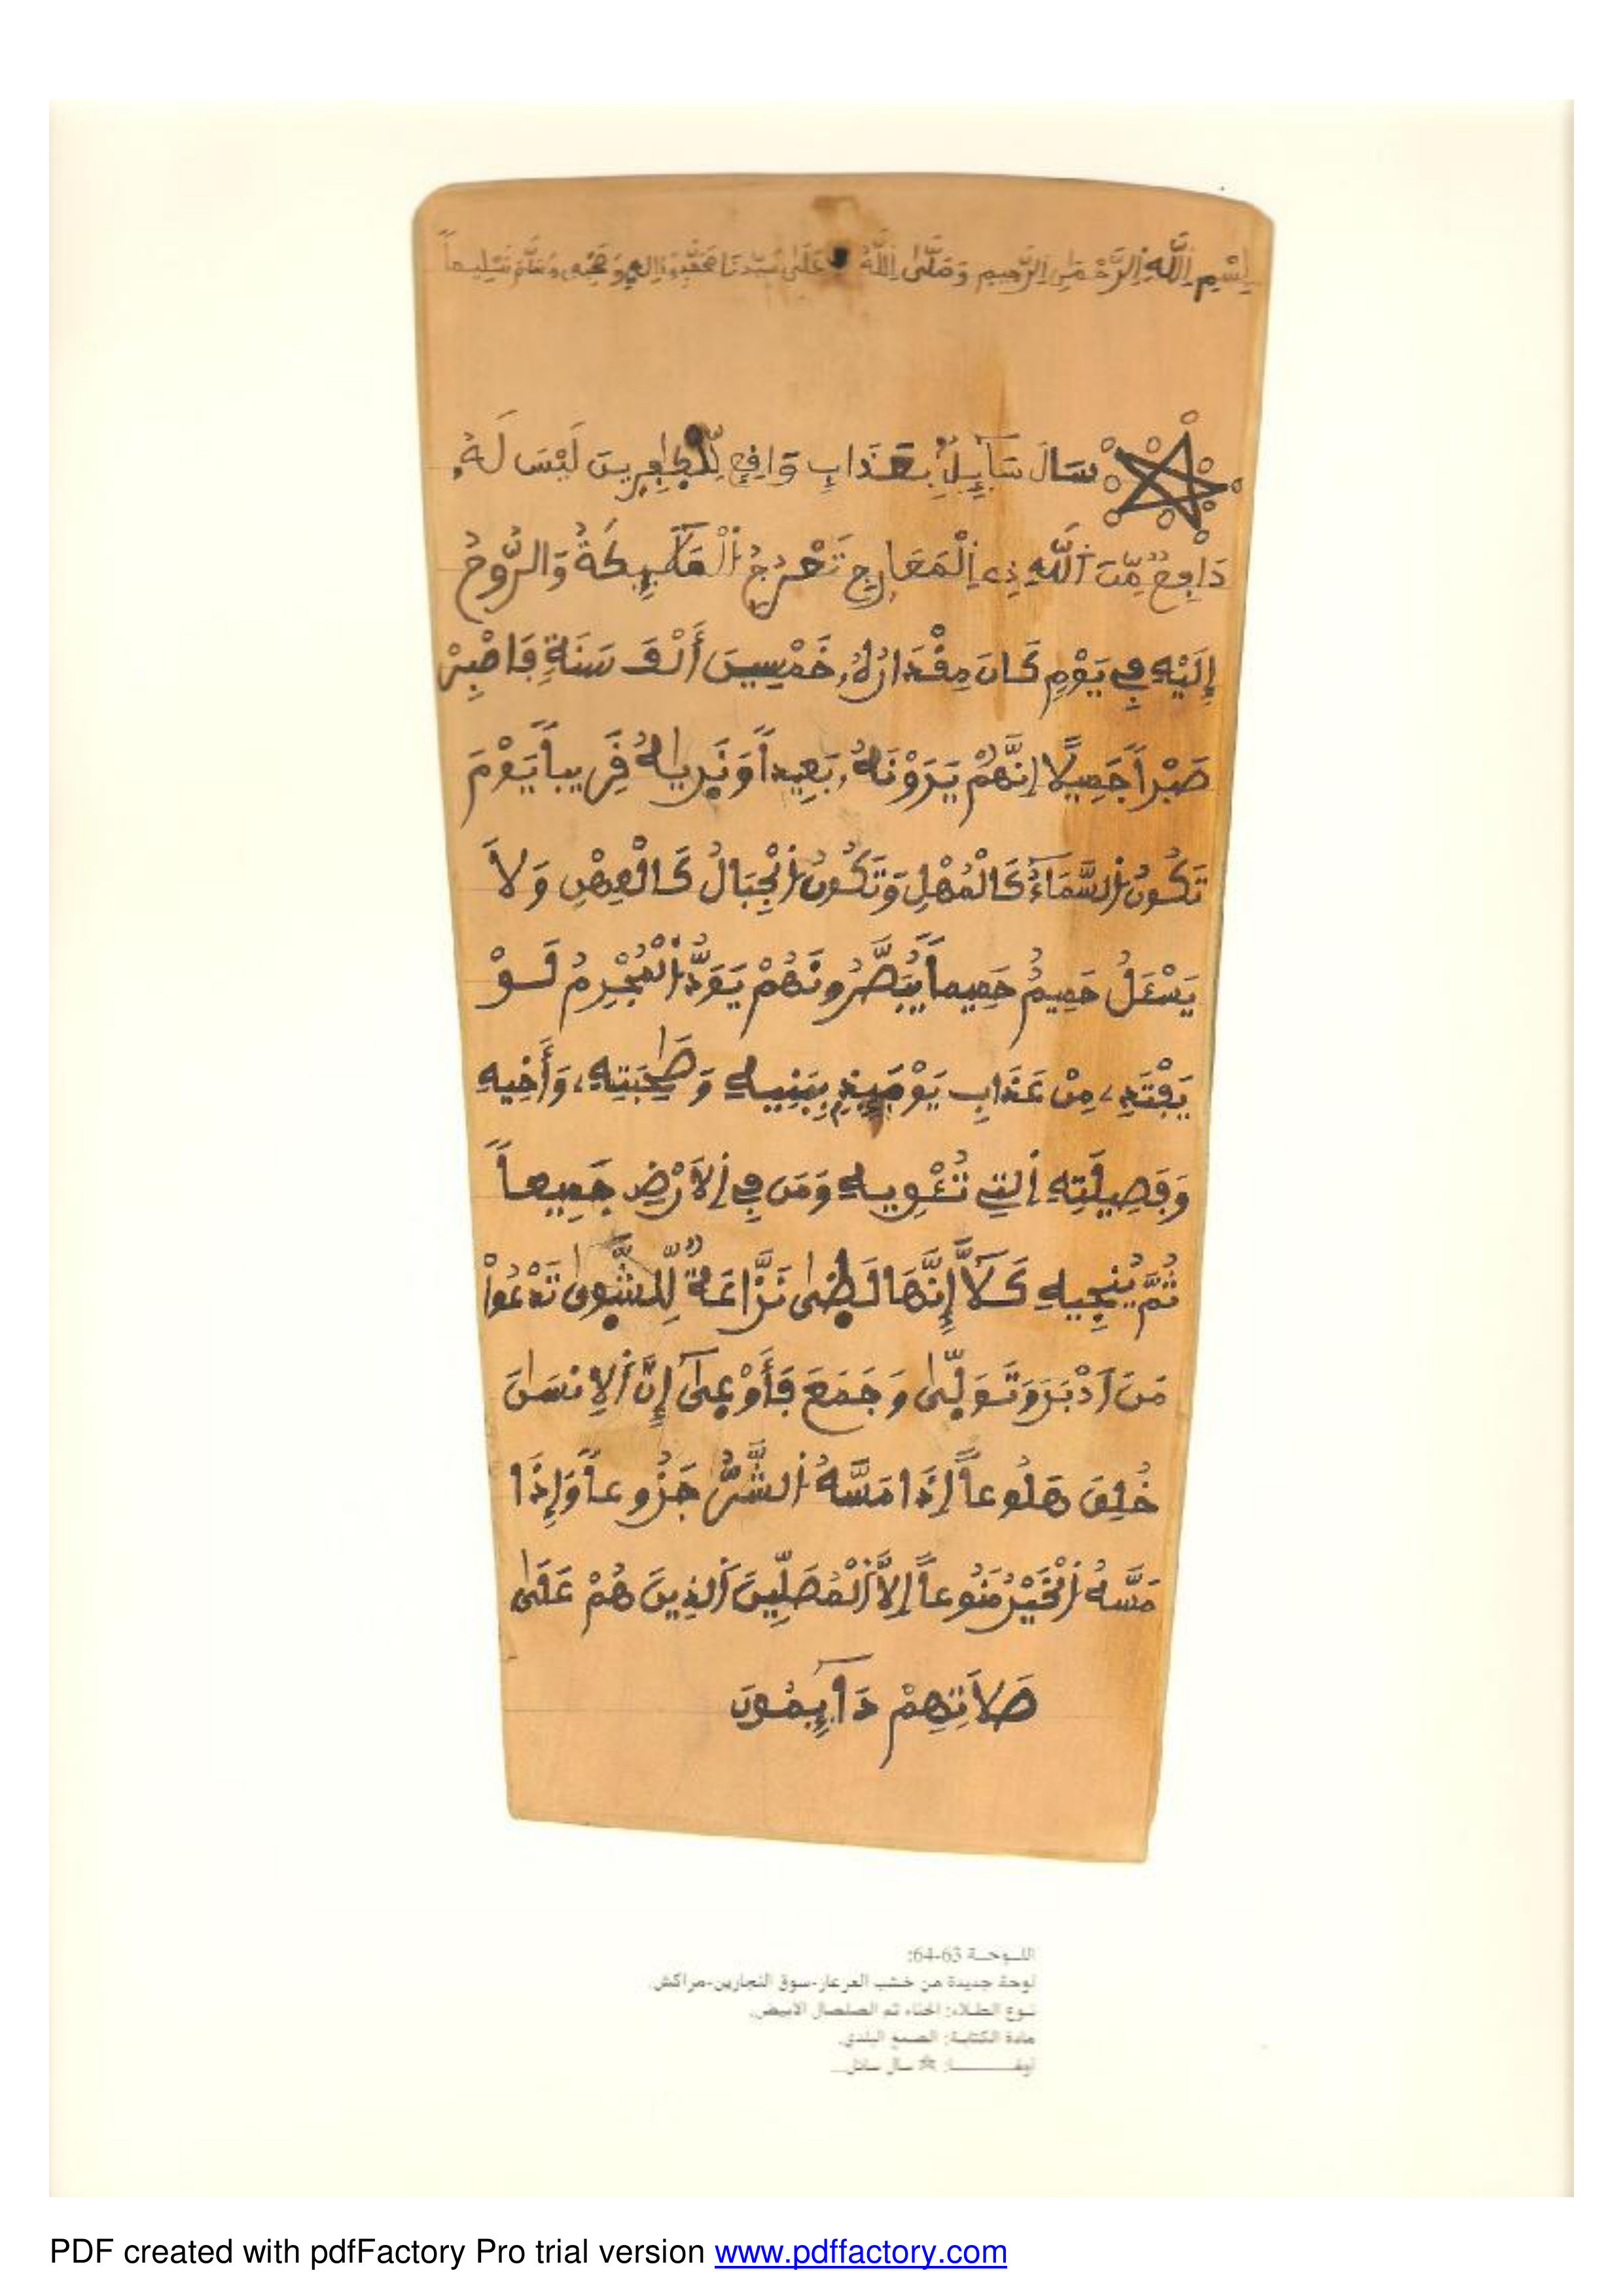 بِسْمِ اِللَّهِ اِلرَّحْمَٰنِ اِلرَّحِيمِ وَصَلَّى اَللَّهُ عَلَى سَيِّدِنَا مُحَمَّدٍ وَءَالِهِ وَصَحْبِهِ وَسَلَّمَ تَسْلِيماً
سَالَ سَآئِلٌ بِعَذَابٍ وَافِعٍ لِّلْكٰفِرِينَ لَيْسَ لَهُۥ
دَافِعٌ مِّنَ اَللَّهِ ذِے اِلْمَعَارِجِ تَعْرُجُ اُلْمَلَٰٓئِكَةُ وَالرُّوحُ
إِلَيْهِ فِے يَوْمٍ كَانَ مِقْدَارُهُۥ خَمْسِينَ أَلْفَ سَنَةٍ فَاصْبِرْ
صَبْراً جَمِيلًا إِنَّهُمْ يَرَوْنَهُۥ بَعِيداً وَنَرٰيهُ قَرِيباً يَوْمَ
تَكُونُ اُلسَّمَآءُ كَالْمُهْلِ وَتَكُونُ اُلْجِبَالُ كَالْعِهْنِ وَلَا
يَسْـَٔلُ حَمِيمٌ حَمِيماً يُبَصَّرُونَهُمْ يَوَدُّ اُلْمُجْرِمُ لَوْ
يَفْتَدِے مِنْ عَذَابِ يَوْمَئِذٍ بِبَنِيهِ وَصَٰحِبَتِهِۦ وَأَخِيهِ
وَفَصِيلَتِهِ اِلتِے تُـْٔوِيهِ وَمَن فِے اِلَارْضِ جَمِيعاً
ثُمَّ يُنجِيهِ كَلَّآ إِنَّهَا لَظٰى نَزَّاعَةٌ لِّلشَّوٰى تَدْعُواْ
مَنَ اَدْبَرَ وَتَوَلّٰى وَجَمَعَ فَأَوْعٰىٓ إِنَّ اَلِانسَٰنَ
خُلِقَ هَلُوعاً إِذَا مَسَّهُ اُلشَّرُّ جَزُوعاً وَإِذَا
مَسَّهُ اُلْخَيْرُ مَنُوعاً إِلَّا اَلْمُصَلِّينَ اَلذِينَ هُمْ عَلَىٰ
صَلَاتِهِمْ دَآئِمُونَ
اللـوحـة 63-64:
لوحة جديدة من خشب العرعار-سوق النجارين-مراكش.
نـوع الطـلاء: الحناء ثم الصلصال الأبيض.
مادة الكتابـة: الصمغ البلدي.
أوقـــــــا: ☆ سال سائل...
PDF created with pdfFactory Pro trial version www.pdffactory.com